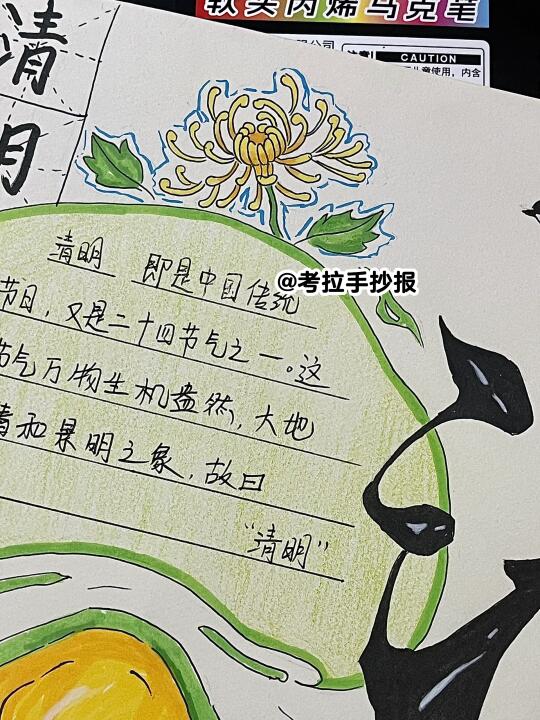 软头丙烯马克笔
CAUTION
清明
清明 即是中国传统
节日，又是二十四节气之一。这
节气万物生机盎然，大地
清和景明之象，故曰
“清明”
@考拉手抄报